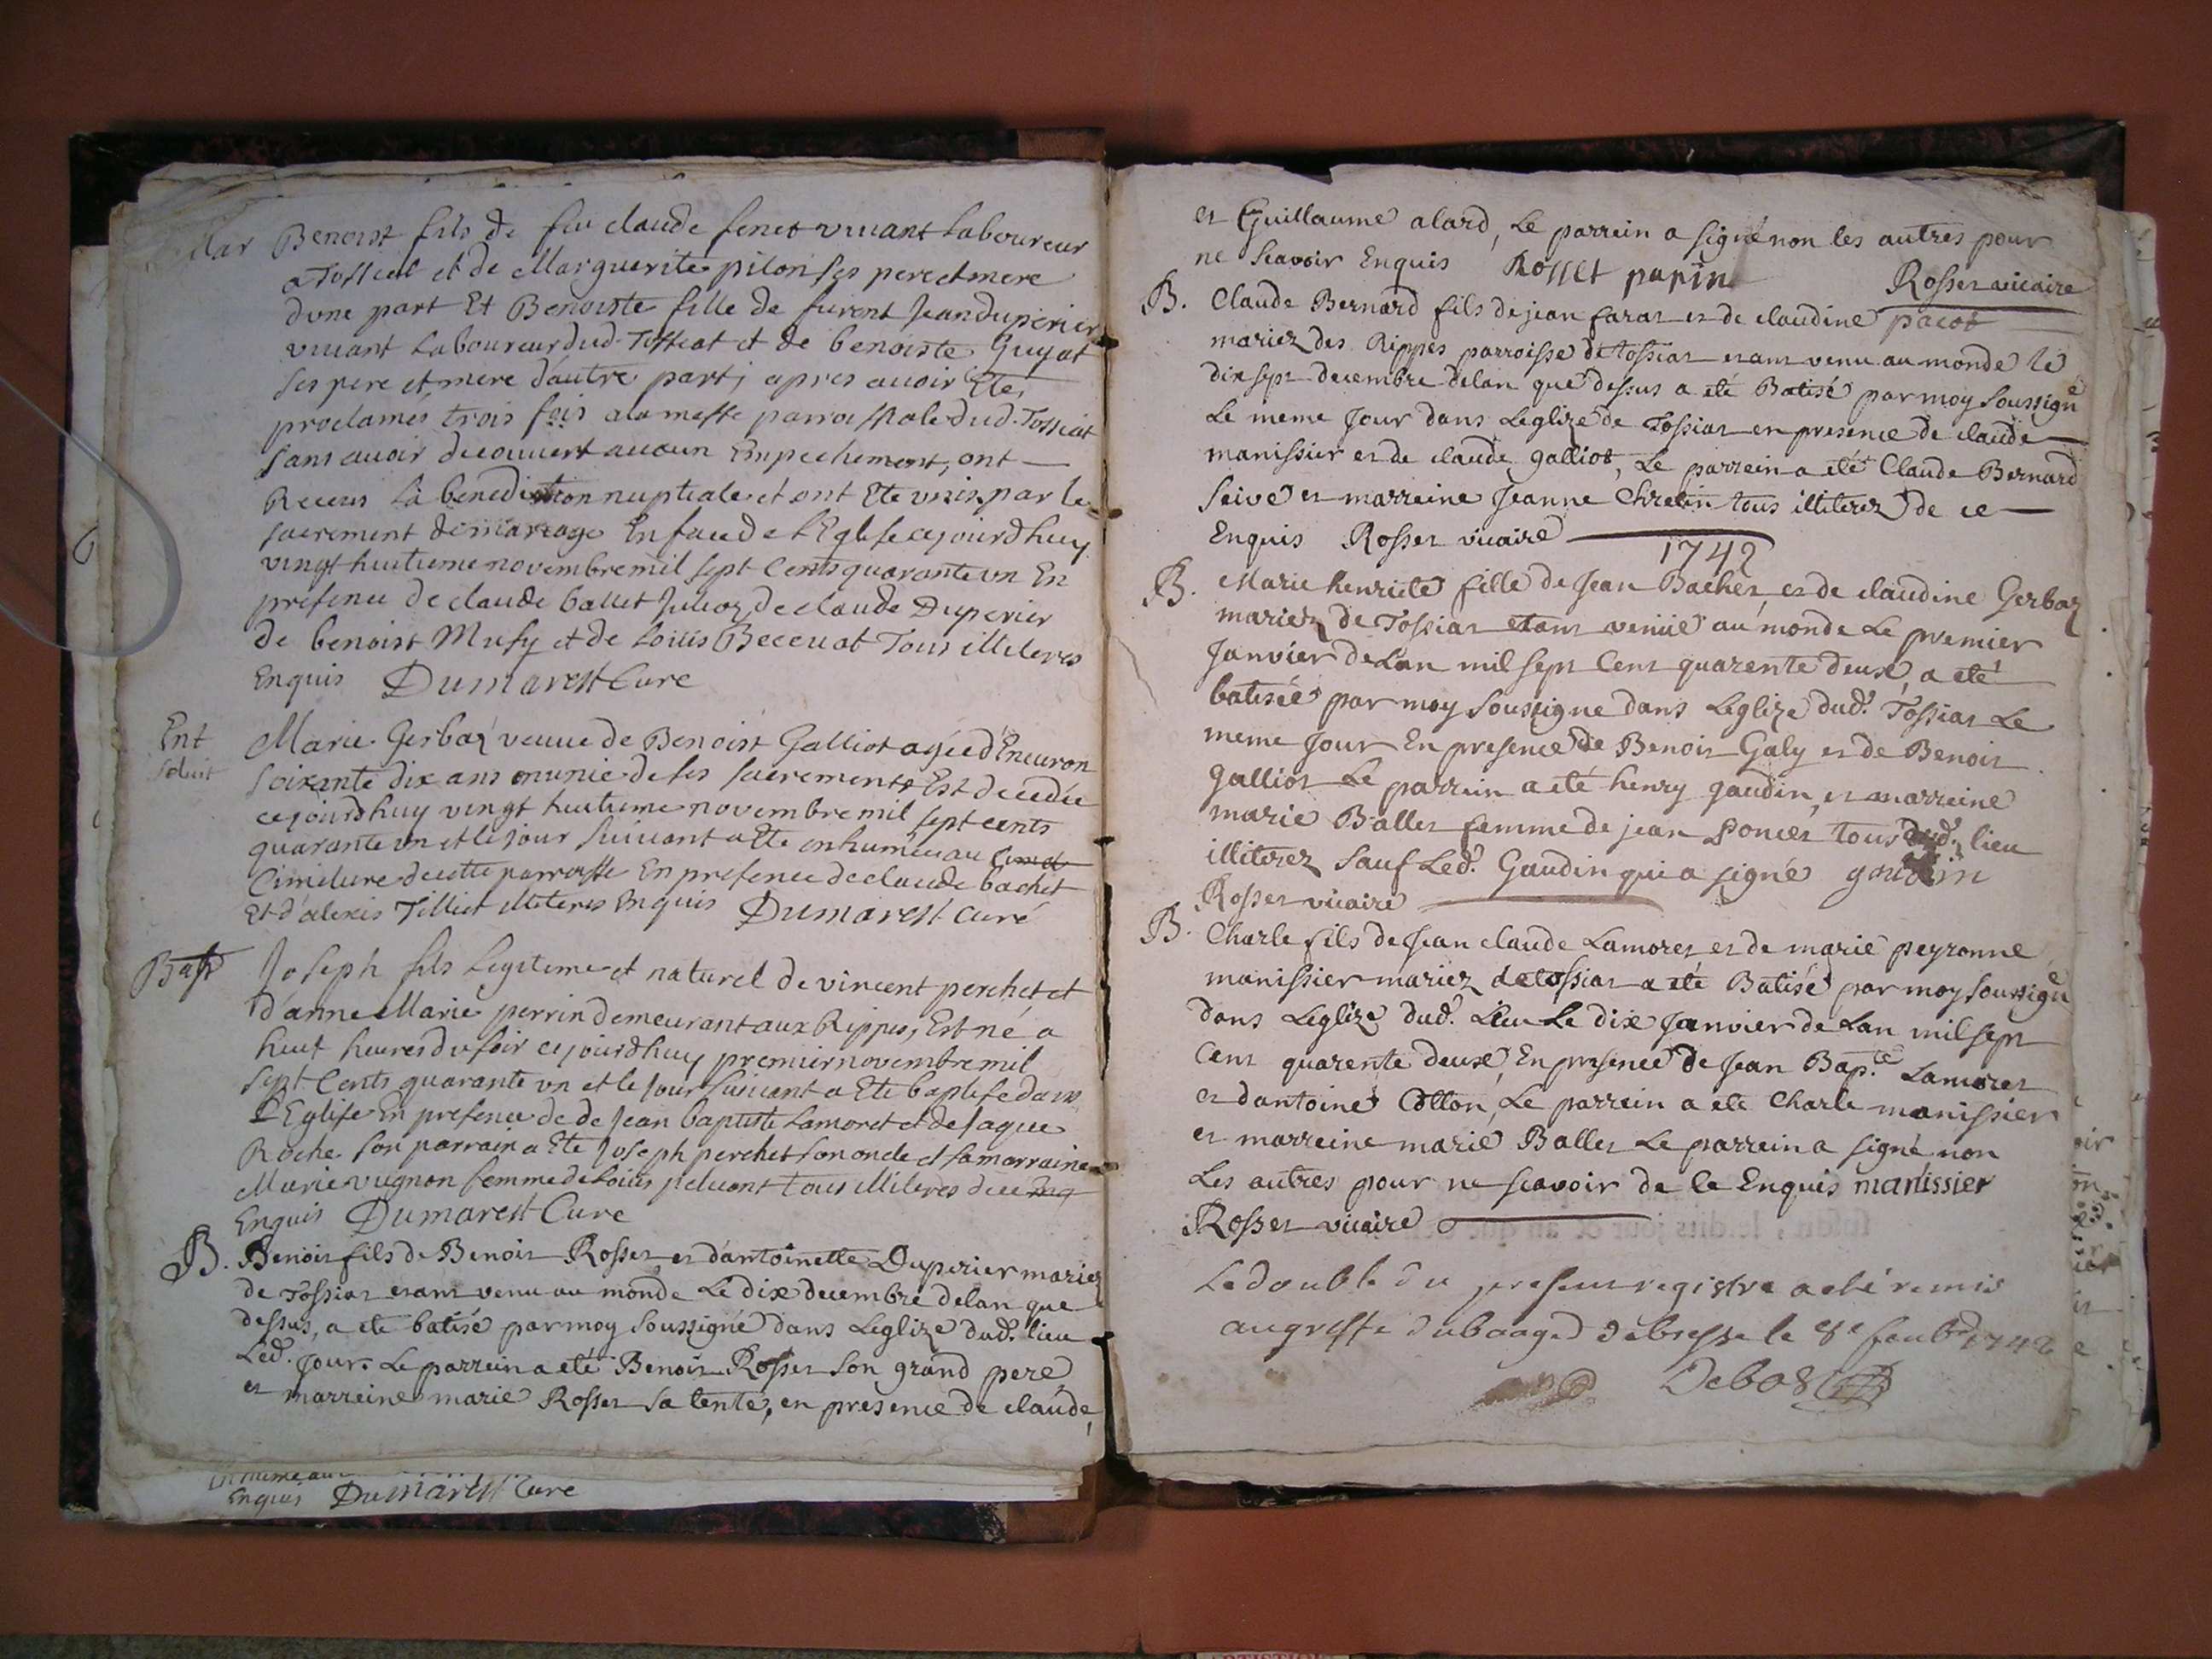 Mar Benoist fils de feu claude fenet vivant Laboureur
a Tossiat et de Marguerite pilon ses pere et mere
dune part Et Benoiste fille de furent Jean duperier
vivant Laboureur dud. Tossiat et de benoiste Guyat
ses pere et mere d'autre part, apres avoir Ete
proclamés trois fois a la messe parroissiale dud. Tossiat
sans avoir decouvert aucun Empechement, ont
Recus la benediction nuptiale et ont Ete unis par le
sacrement de mariage En face de l'Eglise cejourdhuy
vingt huitieme novembre mil sept Cents quarante un En
presence de claude ballet de claude Duperier
de benoist Mufy et de Louis Beccuat Tous illiteres
Enquis Dumarest Cure
Ent Marie Gerbaz veuve de Benoist Galliot agée d'Environ
soixante dix ans munie de ses sacrements Est decedée
cejourdhuy vingt huitieme novembre mil sept cents
quarante un et le jour suivant a Ete enhumée au Cimet
Cimetiere de cette parroisse En presence de claude bachet
Et d'alexis Tilliet illiteres Enquis Dumarest Curé
Bapt Joseph fils Legitime et naturel de vincent perchet et
d'anne Marie perrin demeurant aux Rippes, Est né a
huit heures du soir cejourdhuy premier novembre mil
sept Cents quarante un et le jour suivant a Ete baptise dans
L'Eglise En presence de de Jean baptiste Lamoret et de Jaque
Roche son parrain a Ete Joseph perchet son oncle et sa marraine
Marie vugnon femme de Louis peluant tous illiteres de ce Enq
Enquis Dumarest Cure
B. Benoit fils de Benoit Rosset et d'antoinette Duperier mariez
de Tossiat etant venu au monde Le dix decembre delan que
dessus, a eté batisé par moy soussigné dans Leglize dud. lieu
Led. jour. Le parrein a eté Benoit Rosset son grand pere
et marreine marie Rosset sa tente, en presence de claude
Enquis Dumarest Cure
et Guillaume alard, Le parrein a signé non les autres pour
ne scavoir Enquis Rosset papin
Rosset vicaire
B. Claude Bernard fils de jean farat et de claudine pacot
mariez des Rippes parroisse de tossiat etant venu au monde le
dix sept decembre delan que dessus a eté Batisé par moy soussigné
Le meme Jour dans Leglize de Tossiat en presence de claude
manissier et de claude galliot, Le parrein a eté Claude Bernard
seive et marreine Jeanne Chretin tous illiterez de ce
Enquis Rosset vicaire
1742
B. Marie henriete fille de Jean Bachet et de claudine Gerbaz
mariez de Tossiat etant venüe au monde Le premier
Janvier de Lan mil sept Cent quarente deux, a eté
batisée par moy soussigne dans Leglize dud. Tossiat Le
meme Jour En presence de Benoit Galy et de Benoit
galliot Le parrein a eté henry gaudin, et marreine
marie Ballet femme de jean poncet tous dud. lieu
illiterez sauf Led. Gaudin qui a signé gaudin
Rosset vicaire
B. Charle fils de Jean claude Lamoret et de marie peyronne
manissier mariez de tossiat a eté Batisé par moy soussigné
dans Leglize dud. Lieu Le dix Janvier de Lan mil sept
Cent quarente deux, En presence de Jean Bap.te Lamoret
et dantoine Cotton, Le parrein a ete Charle manissier
et marreine marie Ballet Le parrein a signé non
Les autres pour ne scavoir de ce Enquis manissier
Rosset vicaire
Le double du present registre a eté remis
au greffe du baage de bresse le 8e feub 1742
Debos